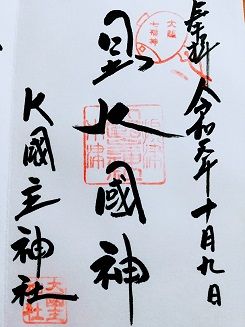 奉拝 令和元年十月九日
大阪
七福神
日出大國神
大國主神社
大國主
神社